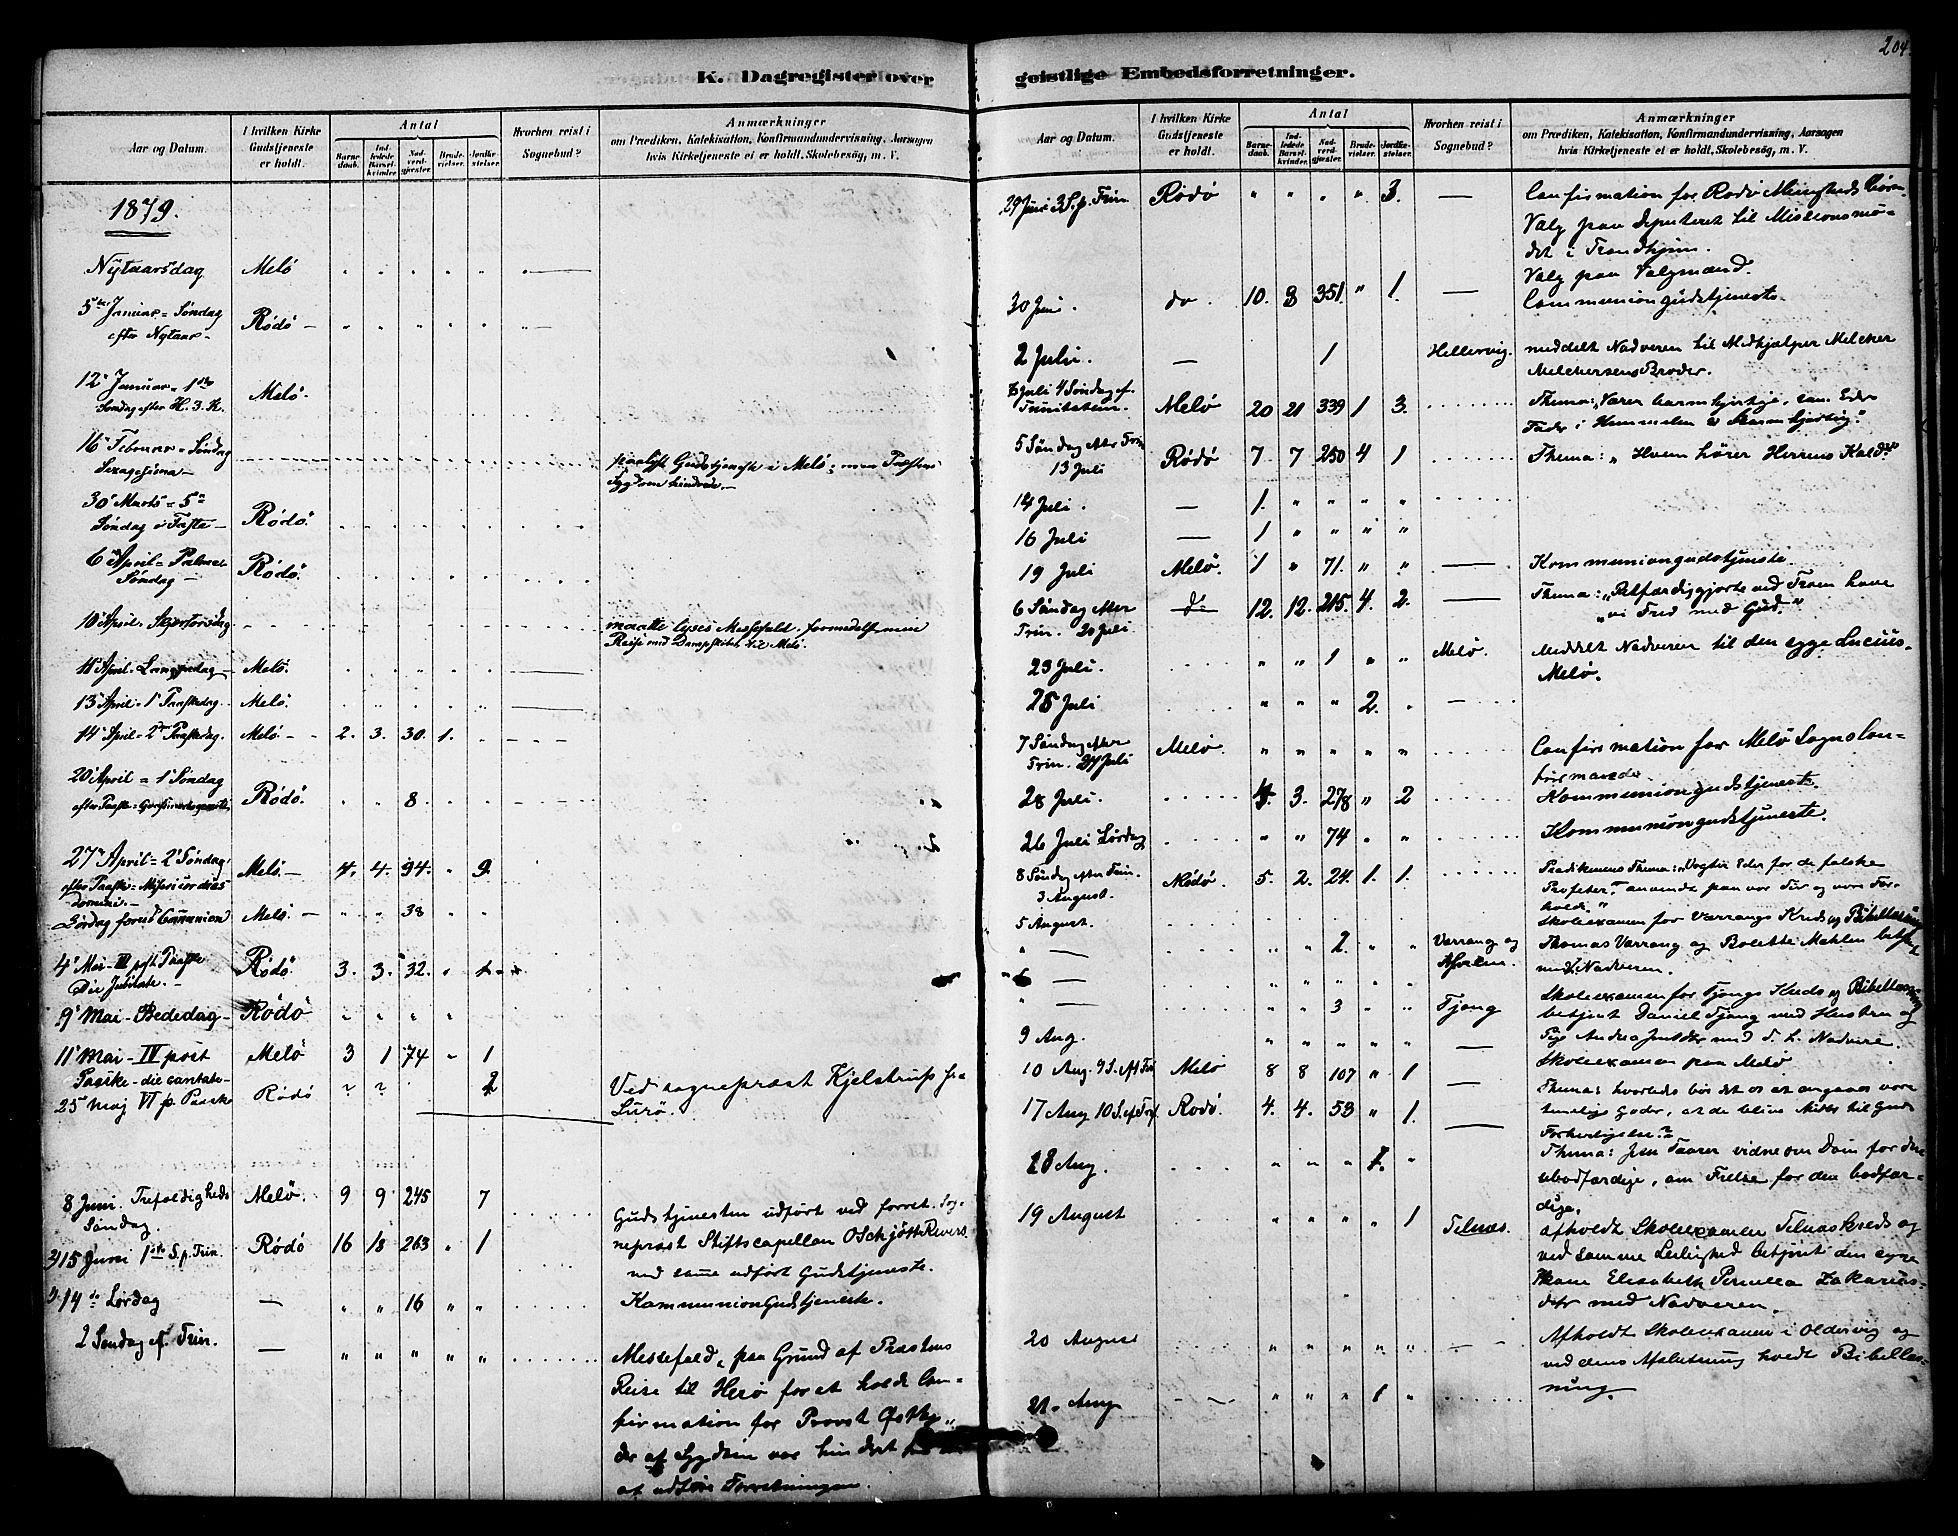 204
K. Dagregister over geistlige Embedsforretninger.
Aar og Datum. I hvilken Kirke Gudstjeneste er holdt. Antal Barnedaab. Indledede Barselkvinder Nadverdgjester. Brudevielser. Jordfæstelser. Hvorhen reist i Sognebud? Anmærkninger om Prædiken, Katekisation, Konfirmandundervisning, Aarsagen hvis Kirketjeneste ei er holdt, Skolebesøg, m. V.
1879.
Nytaarsdag Melø
5te Januar = Søndag
efter Nytaar - Rødø -
12' Januar = 1ste
Søndag efter H. 3. K. Melø.
16' Februar = Søndag
Sexagesima - Gudstjeneste i Melø; men Præstens
Sygdom hindrede. -
30' Marts = 5te
Søndag i Faste - Rødø.
6' April = Palme
Søndag - Rødø.
10' April = Skjærtorsdag maatte lyses Messefald formedelst min
Reise med Dampskibet til Melø.
11' April Langfredag - Melø.
13' April = 1' Paaskedag Melø.
14' April = 2' Paaskedag. Melø - 2. 3. 30. 1.
20' April = 1' Søndag
efter Paaske Rødø. 8.
27' April = 2' Søndag
efter Paaske = Misericordias
Domini. - Melø. - 4. 4. 94. " 9.
Lørdag forud Communion Melø. - " " 38 " "
4' Mai = III post Paaske
Die Jubilate. - Rødø. 3. 3. 32.
9' Mai - Bededag - Rødø " " " "
11' Mai - IV post
Paaske - die cantate - Melø 3 1 74 " 1
25 Maj VI p. Paaske Rødø ? ? 2 Ved sogneprest Kjelstrup fra
Lurø.
8 Juni Trefoldigheds
Søndag. Melø. 9 9 245 7 Gudstjenesten udført ved forret. Sog-
neprest Stiftscapellan O Schjøtt Revers
15 Juni 1ste S. p. Trin. Rødø 16 18 263 " 1 ved samme udført Gudstjeneste.
14de Lørdag — " " 16 " " Kommunion Gudstjeneste.
2 Søndag ef. Trin. — " " " " " Messefald, paa Grund af Præstens
Reise til Herø for at holde Con-
firmation for Provst
der af Sygdom var hindret
at udføre Forretningen.
Aar og Datum. I hvilken Kirke Gudstjeneste er holdt. Antal Barnedaab. Indledede Barselkvinder. Nadverdgjester. Brudevielser. Jordfæstelser. Hvorhen reist i Sognebud? Anmærkninger om Prædiken, Katekisation, Konfirmandundervisning, Aarsagen hvis Kirketjeneste ei er holdt, Skolebesøg, m. V.
29 Juni 3 S. p. Trin. Rødø " " " " 3. — Confirmation for Rødø Menigheds Børn.
Valg paa Deputeret til Missionsmø-
det i Trondhjem.
Valg paa Valgmænd.
30 Juni. do. 10. 8 351. " 1. — Communiongudstjeneste.
2 Juli. — 1 Hellervig. meddelt Nadveren til Medhjælper Melcher
Melchersens Broder.
6 Juli 4 Søndag ef.
Trinitatem. Melø 20 21 339 1 3. Thema: "Værer barmhjertige, som Eders
Fader i Himmelen er barmhjertig."
5 Søndag efter Trin
13 Juli Rødø 7 7 250 4 1 Thema: "Hvem hører Herrens Kald?"
14 Juli. — 1. " " " "
16 Juli — 1 " " " "
19 Juli Melø. 1 " 71. " " — Kommuniongudstjeneste.
6 Søndag efter
Trin. 20 Juli do 12. 12. 215. 4. 2. — Thema: "Retfærdiggjorte ved Troen have
vi Fred med Gud."
23 Juli. " " 1 " " Melø. Meddelt Nadveren til den syge Lucius
Melø.
25 Juli " " " 2. " —
7 Søndag efter
Trin. 27 Juli Melø. " " " " " Confirmation for Melø Sogns Con-
firmander
28 Juli. 4. 3. 278 " 2 Kommuniongudstjeneste.
26 Juli Lørdag " " 74 " " Kommuniongudstjeneste.
8 Søndag efter Trin.
3 August. Rødø. 5. 2. 24. 1. 1. Prædikenens Thema: "Vogter Eder for de falske
Profeter", anvendt paa vor Tid og vore For-
hold."
5 August. Skoleexamen for Værrangs Kreds og Bibellæsning
" — " " 2 " " Værrang og Thomas Værrang og Bolette betjent
med Nadveren.
6 — " " " " " Skoleexamen for Tjongs Kreds og Bibellæsning
" — " " 3 " " Tjong betjent Daniel Tjong med Hustru og
Pige Andrea med d. h. Nadvere.
9 Aug. " " " " " — Skoleexamen paa Melø
10 Aug. 9 S. ef. Tri. Melø 8 8 107 " 1 — Thema: hvorledes bør det os at omgaaes vore
timelige Goder, at de blive Midler til Guds
Forherligelse?
17 Aug 10 S. ef. Tri. Rødø. 4. 4. 53 " 1. — Thema: Jesu Taarer vidne om Dom for den
ubodfærdige, om Frelse for den bodfær-
dige.
18 Aug. " " " 1. "
19 August " " " " 1 Telnæs. afholdt Skoleexamen Telnæs Kreds og
ved samme Leilighed betjent den syge
Kone Elisabeth Pernella Zakarias-
datr med Nadveren.
20 August " " " " " — Afholdt Skoleexamen i Oldervig og
ved dens Afslutning holdt Bibellæs-
ning.
21. Aug " " " 1 "